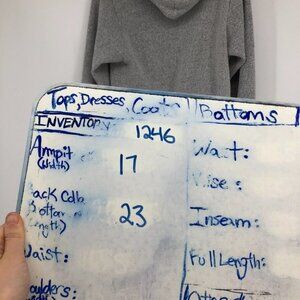 Tops, Dresses, Coats
Bottoms
INVENTORY 1246
Armpit
(Width) 17
Back Colla
Bottom
Length) 23
Waist:
oulders:
Waist:
Rise:
Inseam:
Full Length: